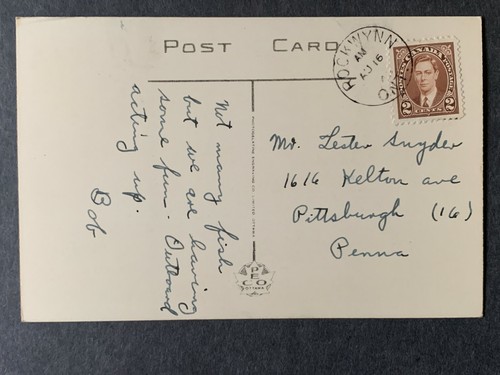 POST CARD
ROCKWYNN
AM
AU 16
ONT
POSTES CANADA POSTAGE
2 CENTS 2
Not many fish
but we are having
some fun. Outboard
acting up.
Bob
PHOTOGELATINE ENGRAVING CO. LIMITED, OTTAWA
PECO
OTTAWA
Mr. Lester Snyder
1616 Kelton ave
Pittsburgh (16)
Penna